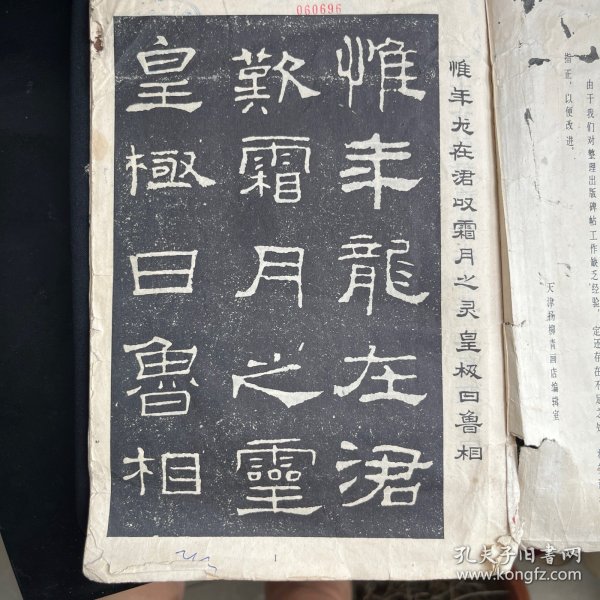 060696
惟年龍在涒
歎霜月之靈
皇極日魯相
惟年龙在涒叹霜月之灵皇极日鲁相
1
指正，以便改进。
由于我们对整理出版碑帖工作缺乏经验，
定还存在不足之处
天津杨柳青画店编辑室
孔夫子旧书网
www.kongfz.com